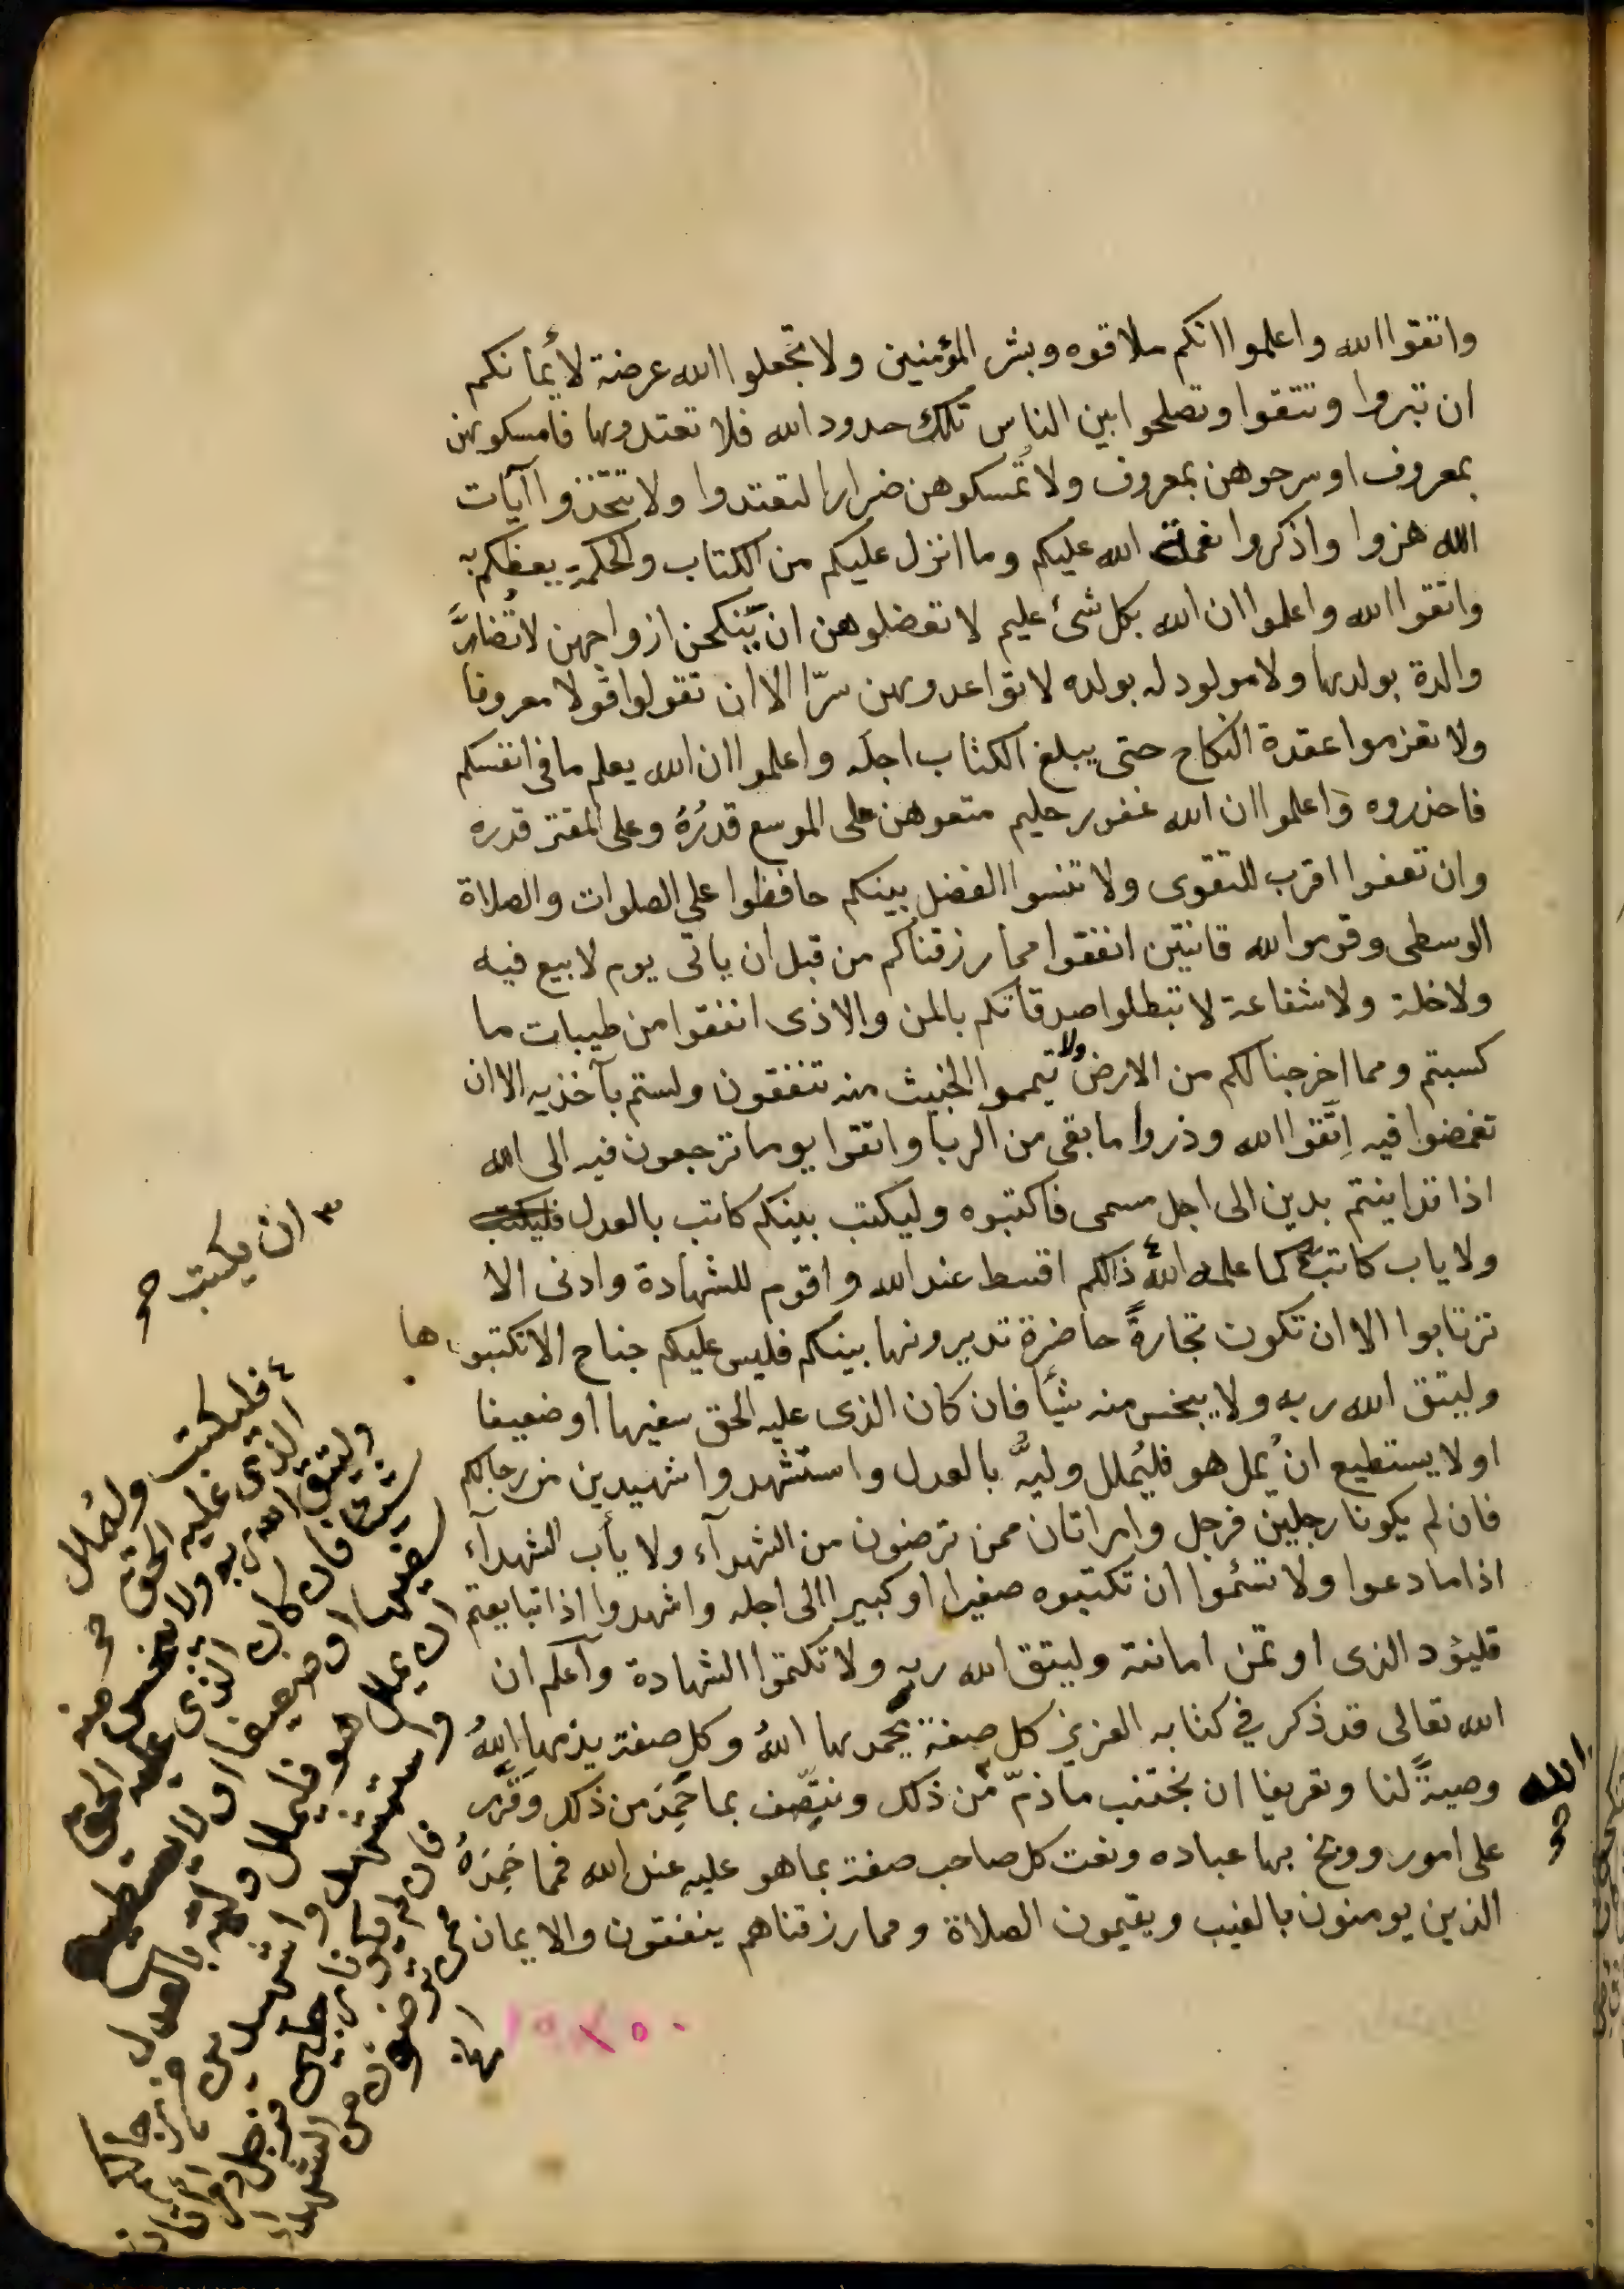 واتقوا الله واعلموا انكم ملاقوه وبشر المؤمنين ولا تجعلوا الله عرضة لأيمانكم
ان تبروا وتتقوا وتصلحوا بين الناس تلك حدود الله فلا تعتدوها فامسكوهن
بمعروف او سرحوهن بمعروف ولا تُمسكوهن ضرارا لتعتدوا ولا تتخذوا آيات
الله هزوا واذكروا نعمة الله عليكم وما انزل عليكم من الكتاب والحكمة يعظكم به
واتقوا الله واعلموا ان الله بكل شئ عليم لا تعضلوهن ان ينكحن ازواجهن لا تُضارَّ
والدة بولدها ولا مولود له بولده لا تواعدوهن سرّا الا ان تقولوا قولا معروفا
ولا تعزموا عقدة النكاح حتى يبلغ الكتاب اجله واعلموا ان الله يعلم ما في انفسكم
فاحذروه وَاعلموا ان الله غفور حليم متعوهن على الموسع قدرُهُ وعلى المقتر قدره
وان تعفوا اقرب للتقوى ولا تنسوا الفضل بينكم حافظوا علي الصلوات والصلاة
الوسطى وقوموا لله قانتين انفقوا مما رزقناكم من قبل ان ياتى يوم لا بيع فيه
ولا خلة ولا شفاعة لا تبطلوا صدقاتكم بالمن والاذى انفقوا من طيبات ما
كسبتم ومما اخرجنا لكم من الارض ولا تيمموا الخبيث منه تنفقون ولستم بآخذيه الا ان
تغمضوا فيه اِتَّقوا الله وذروا ما بقى من الربا واتقوا يوما ترجعون فيه الى الله
اذا تداينتم بدين الى اجل مسمى فاكتبوه وليكتب بينكم كاتب بالعدل فليكتب
ولا ياب كاتب ٣ كما علمه اللهُ ٤ ذالكم اقسط عند الله واقوم للشهادة وادنى الا
ترتابوا الا ان تكون تجارةً حاضرة تديرونها بينكم فليس عليكم جناح الا تكتبوها
وليتق الله ربه ولا يبخس منه شيأ فان كان الذى عليه الحق سفيها او ضعيفا
او لا يستطيع ان يُمل هو فليُملل وليُّه بالعدل واستشهدوا شهيدين من رجالكم
فان لم يكونا رجلين فرجل وامراتان ممن ترضون من الشهدآء ولا يأب الشهدآء
اذا ما دعوا ولا تسئموا ان تكتبوه صغيرا او كبيرا الى اجله واشهدوا اذا تبايعتم
فليؤد الذى اوتمن امانته وليتق الله ربه ولا تكتموا الشهادة وآعلم ان
الله تعالى قد ذكر في كتابه العزيز كل صفة يحمدها اللهُ وكل صفة يذمها اللهُ
وصيةً لنا وتعريفا ان نجتنب ما ذمّ من ذلك ونتّصِف بما حَمِدَ من ذلك وقَرَّر
على امور ووبخ بها عباده ونعت كل صاحب صفة بما هو عليه عند الله فمما حَمِدَهُ
الذين يومنون بالغيب ويقيمون الصلاة ومما رزقناهم ينفقون والايمان
الله صح
٣ ان يكتب صح
٤ فليكتب وليُملل
الذى عليه الحق صح
وليتق الله ربه ولا يبخس منه
شيئا فان كان الذى عليه الحق
سفيها او ضعيفا او لا يستطيع
ان يمل هو فليملل وليه بالعدل
واستشهدوا شهيدين من رجالكم
فان لم يكونا رجلين فرجل وامراتان
ممن ترضون من الشهداء